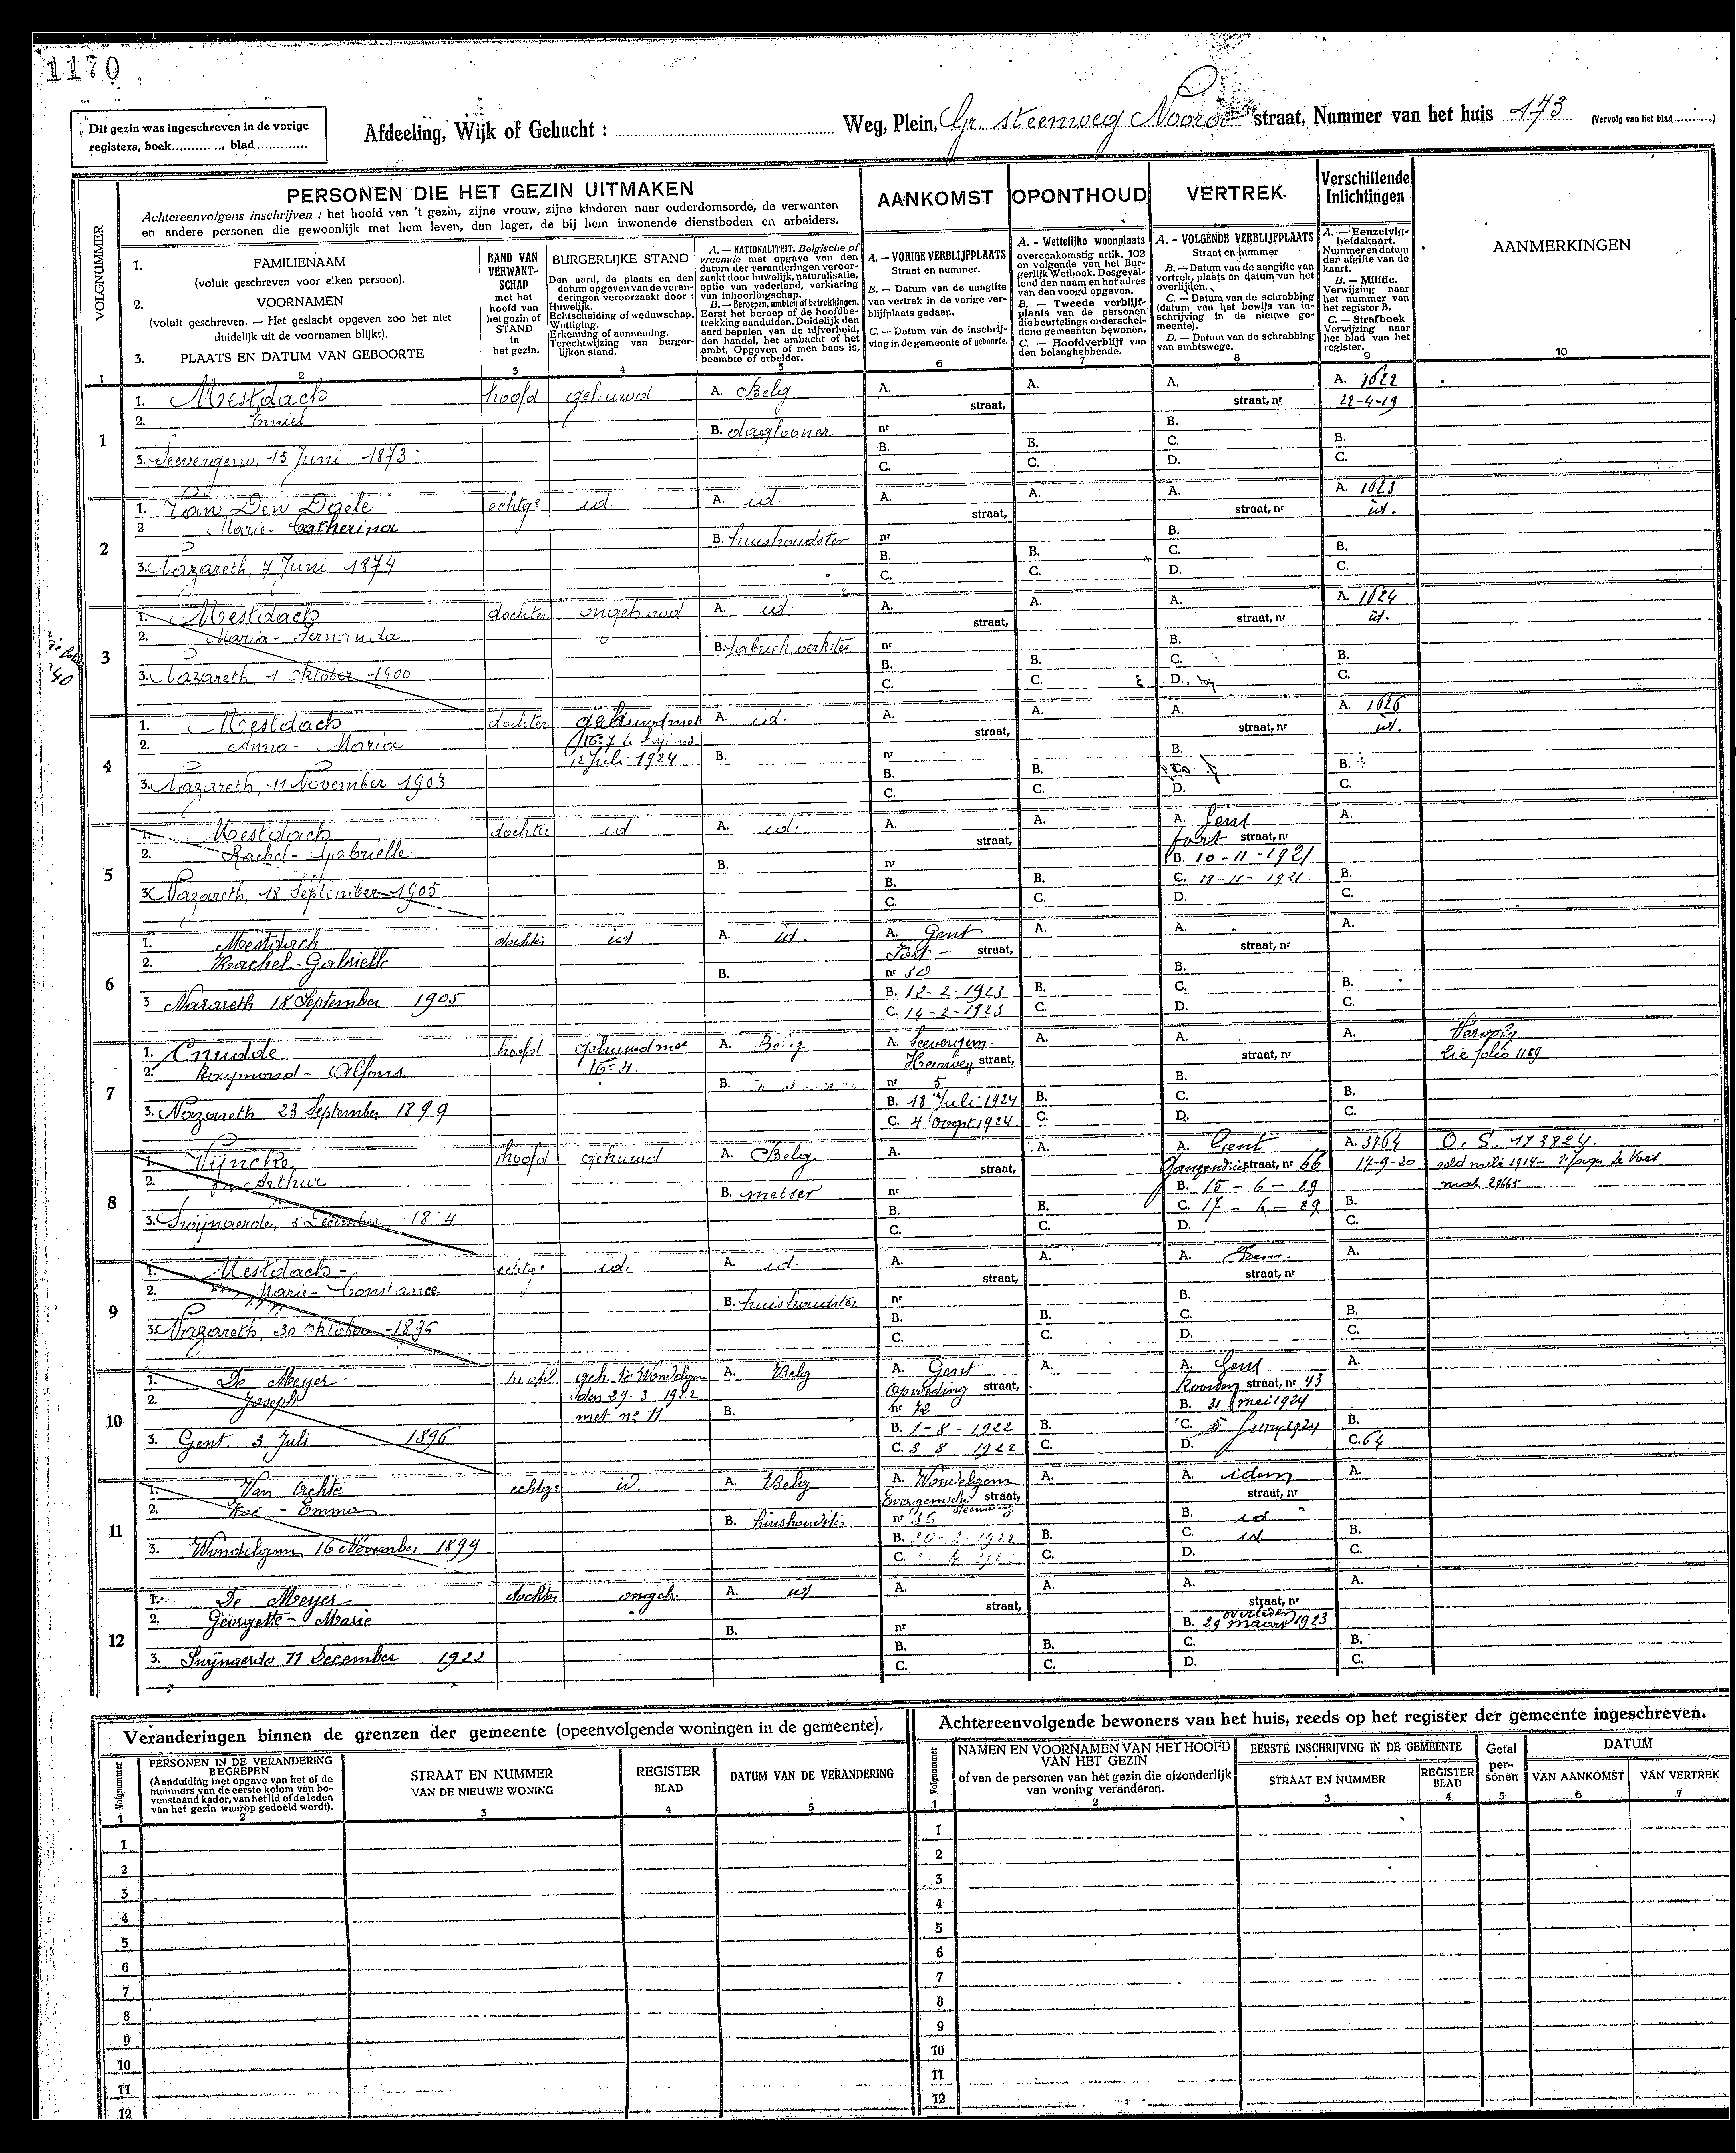 1170
Dit gezin was ingeschreven in de vorige
registers, boek............, blad..............
Afdeeling, Wijk of Gehucht : ........ Weg, Plein, Gr. steenweg Noord straat, Nummer van het huis 173 (Vervolg van het blad ..........)
VOLGNUMMER
PERSONEN DIE HET GEZIN UITMAKEN
Achtereenvolgens inschrijven : het hoofd van 't gezin, zijne vrouw, zijne kinderen naar ouderdomsorde, de verwanten
en andere personen die gewoonlijk met hem leven, dan lager, de bij hem inwonende dienstboden en arbeiders.
1. FAMILIENAAM
(voluit geschreven voor elken persoon).
2. VOORNAMEN
(voluit geschreven. — Het geslacht opgeven zoo het niet
duidelijk uit de voornamen blijkt).
3. PLAATS EN DATUM VAN GEBOORTE
BAND VAN
VERWANT-
SCHAP
met het
hoofd van
het gezin of
STAND
in
het gezin.
BURGERLIJKE STAND
Den aard, de plaats en den
datum opgeven van de veran-
deringen veroorzaakt door :
Huwelijk.
Echtscheiding of weduwschap.
Wettiging.
Erkenning of aanneming.
Terechtwijzing van burger-
lijken stand.
A. — NATIONALITEIT. Belgische of
vreemde met opgave van den
datum der veranderingen veroor-
zaakt door huwelijk, naturalisatie,
optie van vaderland, verklaring
van inboorlingschap.
B. — Beroepen, ambten of betrekkingen.
Eerst het beroep of de hoofdbe-
trekking aanduiden. Duidelijk den
aard bepalen van de nijverheid,
den handel, het ambacht of het
ambt. Opgeven of men baas is,
beambte of arbeider.
AANKOMST
A. — VORIGE VERBLIJFPLAATS
Straat en nummer.
B. — Datum van de aangifte
van vertrek in de vorige ver-
blijfplaats gedaan.
C. — Datum van de inschrij-
ving in de gemeente of geboorte.
OPONTHOUD
A. - Wettelijke woonplaats
overeenkomstig artik. 102
en volgende van het Bur-
gerlijk Wetboek. Desgeval-
lend den naam en het adres
van den voogd opgeven.
B. — Tweede verblijf-
plaats van de personen
die beurtelings onderschei-
dene gemeenten bewonen.
C. — Hoofdverblijf van
den belanghebbende.
VERTREK
A. - VOLGENDE VERBLIJFPLAATS
Straat en nummer
B. — Datum van de aangifte van
vertrek, plaats en datum van het
overlijden.
C. — Datum van de schrabbing
(datum van het bewijs van in-
schrijving in de nieuwe ge-
meente).
D. — Datum van de schrabbing
van ambtswege.
Verschillende
Inlichtingen
A. — Eenzelvig-
heidskaart.
Nummer en datum
der afgifte van de
kaart.
B. — Militie.
Verwijzing naar
het nummer van
het register B.
C. — Strafboek
Verwijzing naar
het blad van het
register.
AANMERKINGEN
1 2 3 4 5 6 7 8 9 10
1
1. Mestdach hoofd gehuwd A. Belg A. straat, A. A. straat, nr A. 1622
2. Emiel 22-4-19
B. daglooner nr B.
3. Seevergem, 15 Juni 1873 B. C. B. C. C. D. B. C.
2
1. Van Den Daele echtge id. A. id. A. straat, A. A. straat, nr A. 1623
2 Marie-Catherina id.
B. huishoudster nr B.
3. Nazareth, 7 Juni 1874 B. C. B. C. C. D. B. C.
3
1. Mestdach dochter ongehuwd A. id. A. straat, A. A. straat, nr A. 1624
2. Maria-Fernanda id.
B. fabriekwerkster nr B.
3. Nazareth, 1 Oktober 1900 B. C. B. C. C. D. B. C.
4
1. Mestdach dochter gehuwd met A. id. A. straat, A. A. straat, nr A. 1626
2. Anna-Maria id.
12 Juli 1924 B. nr B.
3. Nazareth, 11 November 1903 B. C. B. C. D. B. C.
5
1. Mestdach dochter id. A. id. A. straat, A. A. Gent A.
2. Rachel-Gabrielle fort straat, nr
B. nr B. 10-11-1921
3. Nazareth, 18 September 1905 B. C. B. C. C. 18-11-1921. D. B. C.
6
1. Mestdach dochter id A. id. A. Gent A. A. A.
2. Rachel-Gabrielle Fort- straat, straat, nr
B. nr 30 B.
3 Nazareth 18 September 1905 B. 12-2-1923 B. C. B.
C. 14-2-1923 C. D. C.
7
1. Cnudde hoofd gehuwd met A. Belg A. Seevergem. A. A. A. Vervolg
2. Raymond-Alfons No 4. Heirweg straat, straat, nr Zie folio 1189
B. nr 5 B.
3. Nazareth 23 September 1899 B. 18 Juli 1924 B. C. B.
C. 4 Oogst 1924 C. D. C.
8
1. Vijncke hoofd gehuwd A. Belg A. straat, A. A. Gent A. 3764 O. S. 173824.
2. Arthur straat, nr 66 17-9-20
B. metser nr B. 15-6-29
3. Swijnaerde, 5 December B. C. B. C. C. 17-6-29 D. B. C.
9
1. Mestdach- echtge id. A. id. A. straat, A. A. Idem. straat, nr A.
2. Marie-Constance
B. huishoudster nr B.
3. Nazareth, 30 Oktober 1896 B. C. B. C. C. D. B. C.
10
1. De Meyer hoofd geh. te Wondelgem A. Belg A. Gent A. A. Gent A.
2. Joseph den 29 3 1922 Opvoeding straat, straat, nr 43
met no 11 B. nr 72 B. 31 mei 1924
3. Gent. 3 Juli 1896 B. 1-8-1922 B. C. 5 Juny 1924 B.
C. 3 8 1922 C. D. C. 64
11
1. Van Achte echtge id A. Belg A. Wondelgem A. A. idem A.
2. Zoé-Emma Evergemsche straat, steenweg straat, nr
B. huishoudster nr 36 B. id
3. Wondelgem 16 November 1899 B. 1922 B. C. id B.
C. C. D. C.
12
1. De Meyer dochter ongeh. A. id A. straat, A. A. straat, nr A.
2. Georgette-Marie overleden
B. nr B. 29 maart 1923
3. Swijnaerde 11 December 1922 B. C. B. C. C. D. B. C.
Veranderingen binnen de grenzen der gemeente (opeenvolgende woningen in de gemeente).
Volgnummer
PERSONEN IN DE VERANDERING
BEGREPEN
(Aanduiding met opgave van het of de
nummers van de eerste kolom van bo-
venstaand kader, van het lid of de leden
van het gezin waarop gedoeld wordt).
STRAAT EN NUMMER
VAN DE NIEUWE WONING
REGISTER
BLAD
DATUM VAN DE VERANDERING
1 2 3 4 5
1
2
3
4
5
6
7
8
9
10
11
12
Achtereenvolgende bewoners van het huis, reeds op het register der gemeente ingeschreven.
Volgnummer
NAMEN EN VOORNAMEN VAN HET HOOFD
VAN HET GEZIN
of van de personen van het gezin die afzonderlijk
van woning veranderen.
EERSTE INSCHRIJVING IN DE GEMEENTE
STRAAT EN NUMMER
REGISTER
BLAD
Getal
per-
sonen
DATUM
VAN AANKOMST VAN VERTREK
1 2 3 4 5 6 7
1
2
3
4
5
6
7
8
9
10
11
12